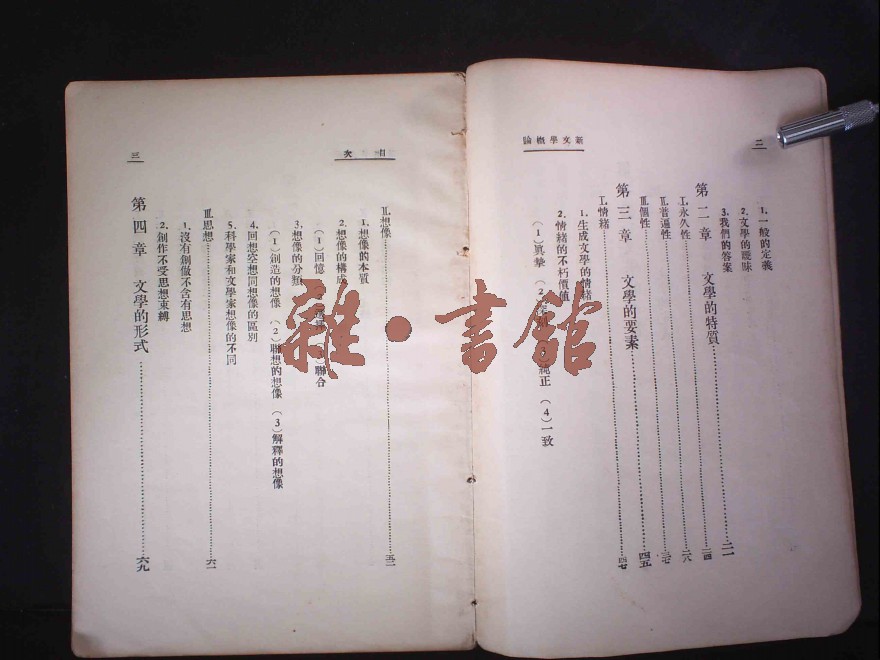 新文學概論
二
1. 一般的定義
2. 文學的曖昧
3. 我們的答案……二一
第二章 文學的特質……二四
I. 永久性……二六
II. 普遍性……三七
III. 個性……四五
第三章 文學的要素
I. 情緒……四七
1. 生成文學的情緒
2. 情緒的不朽價值
(1) 眞摯 (2) 純正 (4) 一致
目次
三
II. 想像……五二
1. 想像的本質
2. 想像的構成
(1) 回憶 聯合
3. 想像的分類
(1) 創造的想像 (2) 聯想的想像 (3) 解釋的想像
4. 同想空想同想像的區別
5. 科學家和文學家想像的不同
III. 思想……六二
1. 沒有創做不含有思想
2. 創作不受思想束縛
第四章 文學的形式……六九
雜·書館